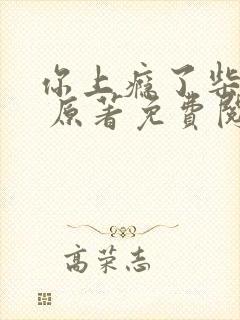 你上瘾了柴
原著免費閱
高荣志